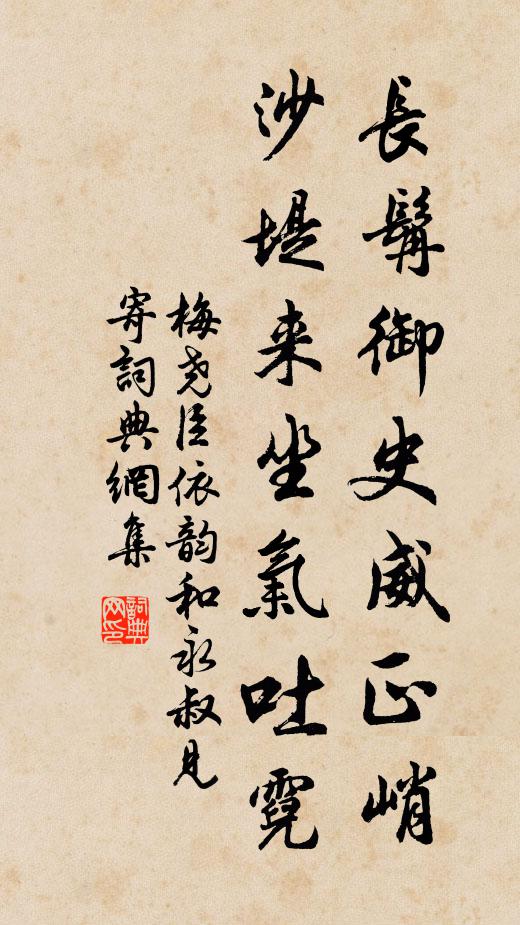 長髯御史威正峭
沙堤来坐氣吐霓
梅尧臣依韵和永叔見
寄詞典網集
詞典网印